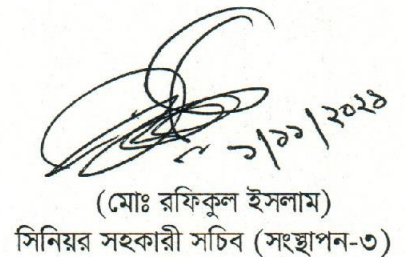 ১/১১/২০২১
(মোঃ রফিকুল ইসলাম)
সিনিয়র সহকারী সচিব (সংস্থাপন-৩)